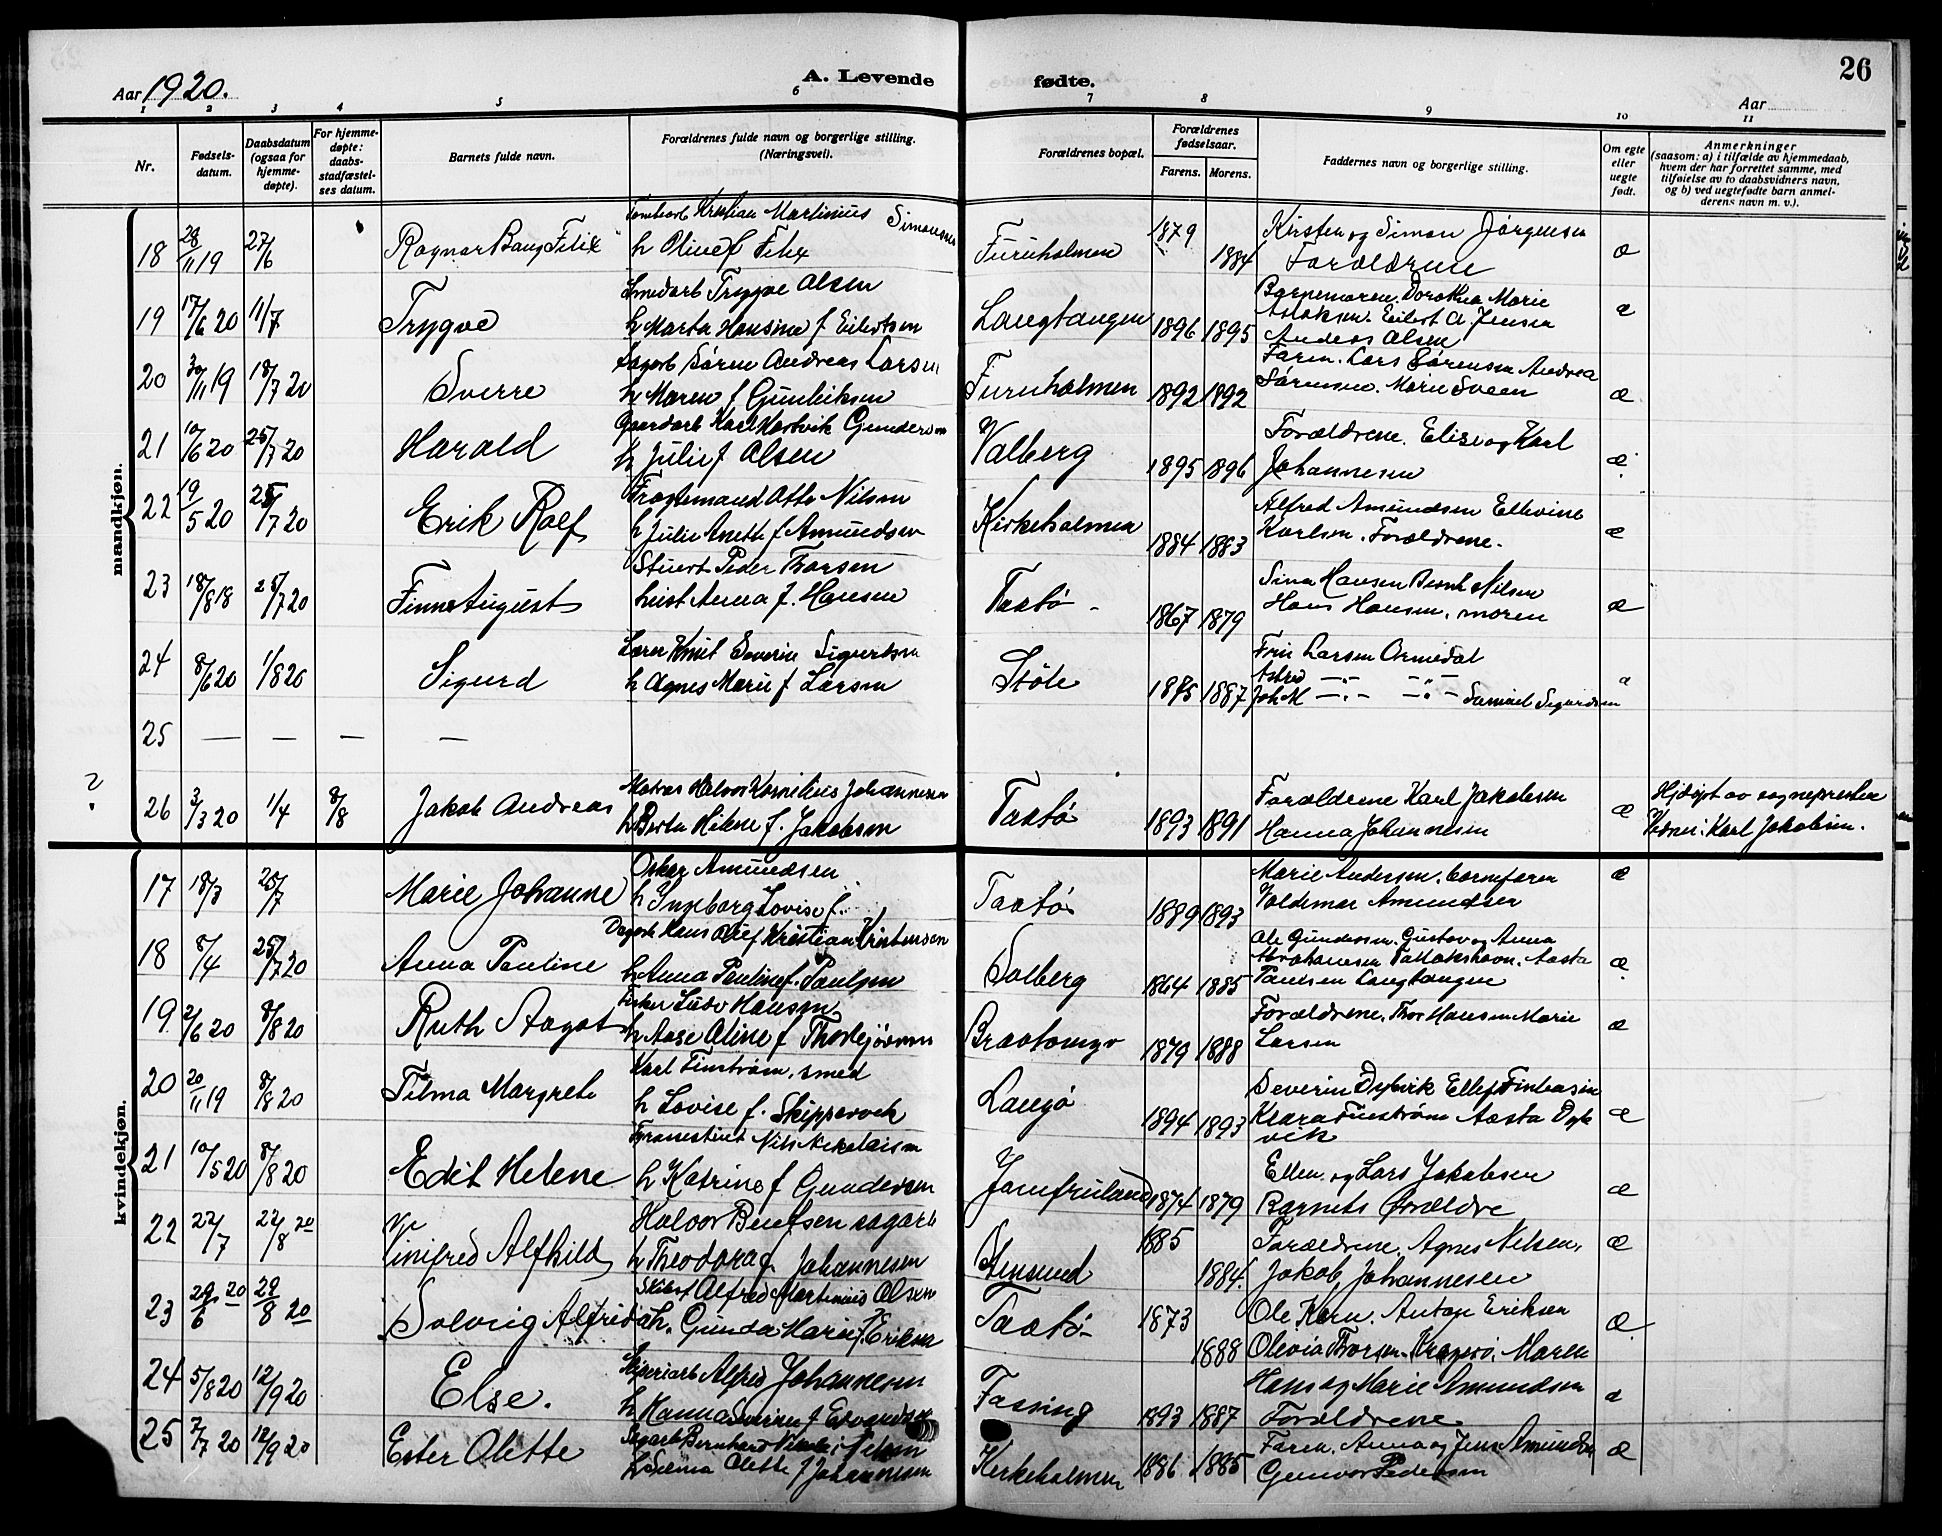 26
Aar 1920.
A. Levende fødte.
Aar
1 2 3 4 5 6 7 8 9 10 11
Nr.
Fødsels-
datum.
Daabsdatum
(ogsaa for
hjemme-
døpte).
For hjemme-
døpte:
daabs-
stadfæstel-
ses datum.
Barnets fulde navn.
Forældrenes fulde navn og borgerlige stilling.
(Næringsvei).
Forældrenes bopæl.
Forældrenes
fødselsaar.
Farens. Morens.
Faddernes navn og borgerlige stilling.
Om egte
eller
uegte
født.
Anmerkninger
(saasom: a) i tilfælde av hjemmedaab,
hvem der har forrettet samme, med
tilføielse av to daabsvidners navn,
og b) ved uegtefødte barn anmel-
derens navn m. v.).
mandkjøn.
18 28/11 19 27/6 Ragnar Bang Felix
Kristian Martinius Simonsen
h Oline f Felix
Furuholmen 1879 1884
Kirsten og Simon Jørgensen
Forældrene
æ
19 17/6 20 11/7 Trygve
Smedarb Trygve Olsen
h Marta Hansine f Eilertsen
Langtangen 1896 1895
Barnemoren. Dorothea Marie
Aslaksen. Eilert A. Jensen
Anders Olsen
æ
20 30/11 19 18/7 20 Sverre
Søren Andreas Larsen
h Maren f Gunleiksen
Furuholmen 1892 1892
Faren. Lars Sørensen Andrea
Sørensen. Marie Sveen
æ
21 10/6 20 25/7 20 Harald
Gaardarb Karl Hartvik Gundersen
h Julie f Olsen
Valberg 1895 1896
Forældrene. Elise og Karl
Johannesen
æ
22 19/5 20 25/7 20 Erik Rolf
Fragtemand Otto Nilsen
h Julie Aneth f Amundsen
Kirkeholmen 1884 1883
Alfred Amundsen Ellevine
Karlsen. Forældrene.
æ
23 18/8 18 25/7 20 Finn August
Stuert Peder Thorsen
Anna f. Hansen
Taatø 1867 1879
Sina Hansen Bernt Nilsen
Hans Hansen, moren
æ
24 8/6 20 1/8 20 Sigurd
Lærer Knut Severin Sigurtsen
h Agnes Marie f Larsen
Støle 1885 1887
Larsen Ormedal
Astrid —"— —"—
Joh M —"— —"— Samuel Sigurdsen
"
25 — — — —
?
26 3/3 20 1/4 8/8 Jakob Andreas
Matros Halvor Kornelius Johannesen
h Berta Helene f. Jakobsen
Taatø 1893 1891
Forældrene Karl Jakobsen
Hanna Johannesen
æ
Hjdøpt av sognepresten
Vidner: Karl Jakobsen.
kvindekjøn.
17 18/3 25/7 Marie Johanne
Oskar Amundsen
h Ingeborg Lovise f.
Taatø 1889 1893
Marie Andersen. barnefaren
Valdemar Amundsen
æ
18 8/4 25/7 20 Anna Pauline
Hans Oluf Kristian Kristensen
h Anna Pauline f. Paulsen
Solberg 1864 1885
Ole Gundersen. Gustav og Anna
Abrahamsen Aasta
Paulsen Langtangen
æ
19 2/6 20 8/8 20 Ruth Aagot
Fisker Ludv Hansen
h Aase Oline f Thorbjørnsen
1879 1888
Forældrene, Thor Hansen Marie
Larsen
æ
20 20/11 19 8/8 20 Tilma Margrete
Karl Finstrøm. smed
h Lovise f. Skippervik
Langø 1894 1893
Severin Dybvik Ellef
Klara Finstrøm Aasta Dyb
vik
æ
21 10/5 20 8/8 20 Edit Helene
Nils Nikolaisen
h Katrine f Gundersen
Jomfruland 1874 1879
Ellen og Lars Jakobsen
Barnets forældre
æ
22 22/7 22/8 20 Vinifred Alfhild
Halvor Bentsen sagarb
h Theodora f Johannesen
Stensund 1885 1884.
Forældrene. Agnes Nilsen.
Jakob Johannesen
æ
23 29/6 20 29/8 20 Solveig Alfrida
Alfred Martinius Olsen
h. Gunda Marie f. Eriksen
Taatø 1873 1888
Ole Antage Eriksen
Olivia Thorsen. Kragerø. Maren
æ
24 5/8 20 12/9 20 Else.
Alfred Johannesen
h Hanna Severine f Edvardsen
Fossing 1893 1887
Hans og Marie Amundsen
Forældrene
æ
25 7/7 20 12/9 20 Ester Olette
Sagarb Bernhard Nikolai Nilsen
h Selma Olette f Johannesen
Kirkeholmen 1886 1885
Faren. Anna og Jens Amundsen
Gunvor Pedersen
æ